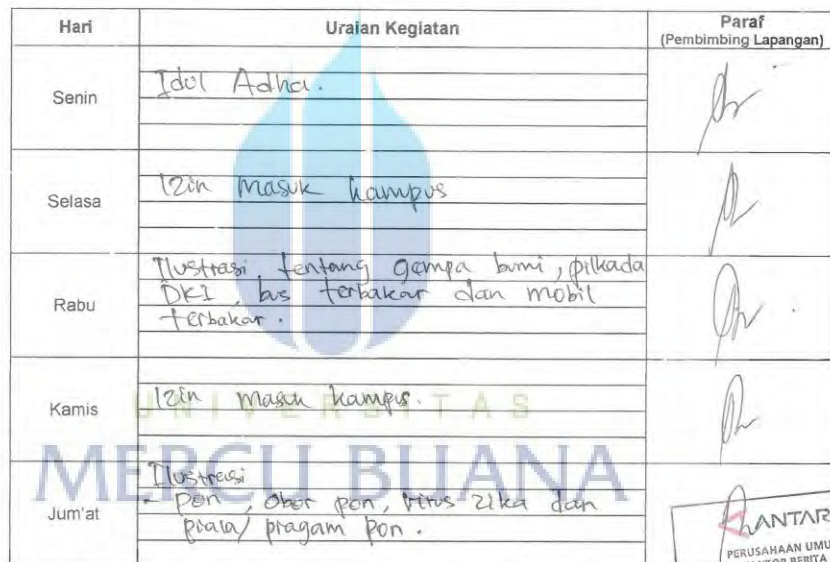 Hari Uraian Kegiatan Paraf
(Pembimbing Lapangan)
Senin
Idul Adha.
Selasa
Izin masuk kampus
Rabu
Ilustrasi tentang gempa bumi, pilkada
DKI, bus terbakar dan mobil
terbakar.
Kamis
Izin masuk kampus.
UNIVERSITAS
MERCU BUANA
Jum'at
Ilustrasi
- pon, obor pon, virus zika dan
piala/ piagam pon.
ANTAR
PERUSAHAAN UMU
KANTOR BERITA